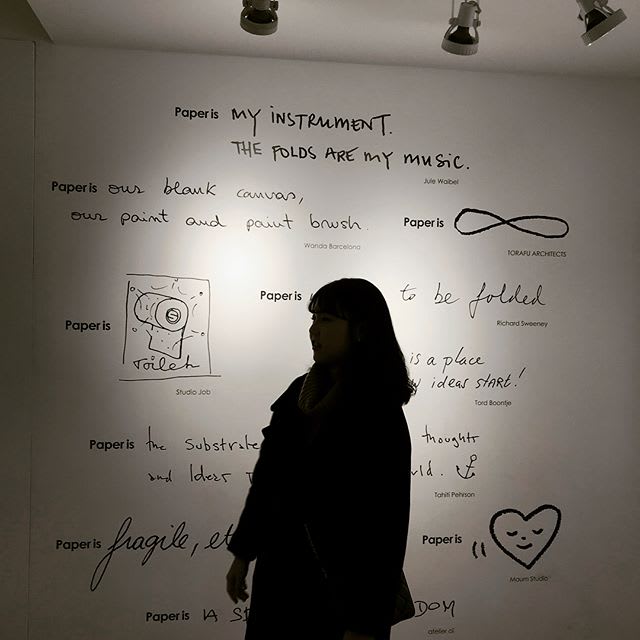 Paper is MY INSTRUMENT.
THE FOLDS ARE MY MUSIC.
Jule Waibel
Paper is our blank canvas,
our paint and paint brush.
Wanda Barcelona
Paper is
TORAFU ARCHITECTS
Paper is to be folded
Richard Sweeney
Paper is
Toilet
Studio Job
is a place
ideas START!
Tord Boontje
Paper is the Substrate thoughts
and Ideas
Tahiti Pehrson
Paper is fragile,
Paper is
Maum Studio
Paper is
atelier oï